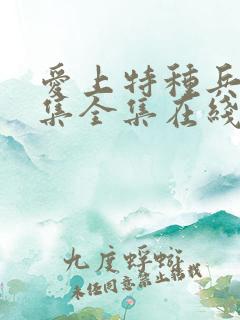 爱上特種兵
集全集在綫
九度蜉蝣
未经同意禁止转载